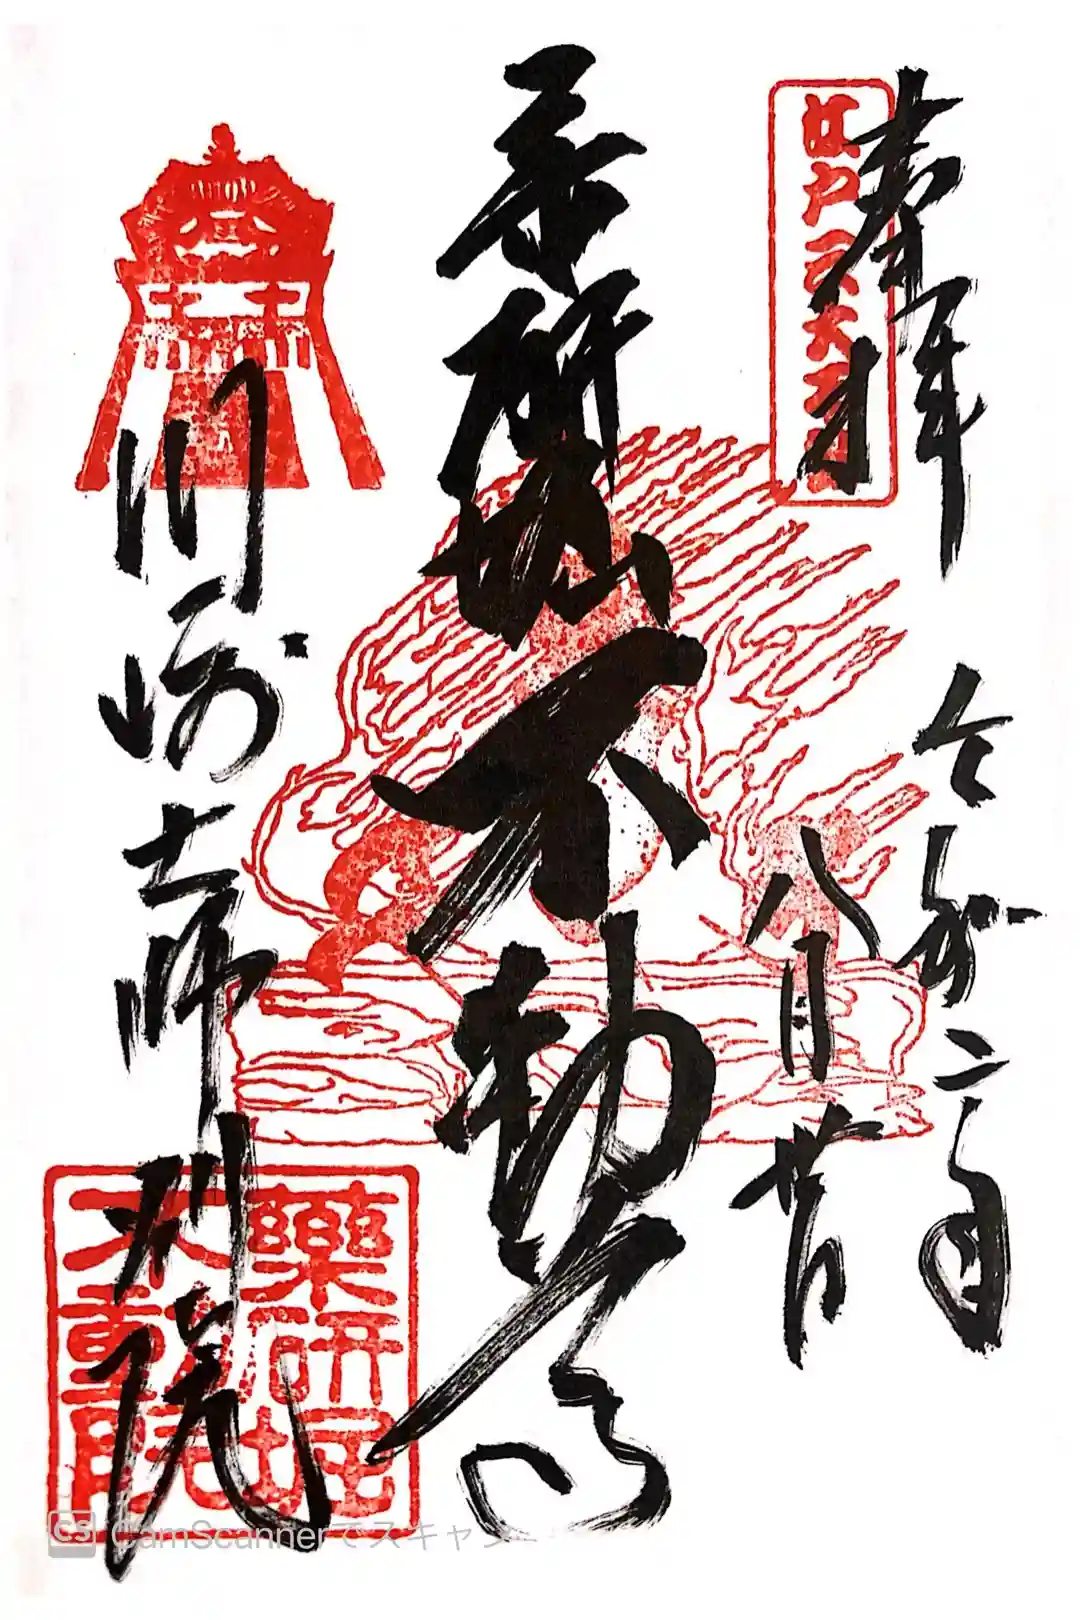 奉拝
江戸三大不動
令和二年
八月廿日
薬研堀不動尊
川崎大師別院
藥研堀
不動院
CS CamScannerでスキャン